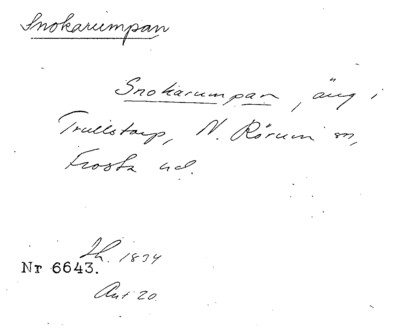 Snokarumpan
Snokarumpan, äng i
Trullstorp, N. Rörum sn,
Frosta hd.
Lh. 1834
Nr 6643.
Ant 20